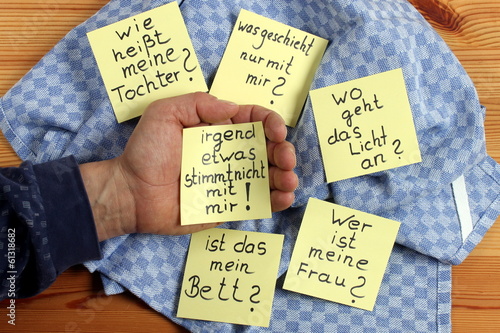 wie
heißt
meine
Tochter?
was geschieht
nur mit
mir?
wo
geht
das
Licht
an?
irgend
etwas
stimmt nicht
mit
mir!
ist das
mein
Bett?
Wer
ist
meine
Frau?
61318682
Adobe Stock